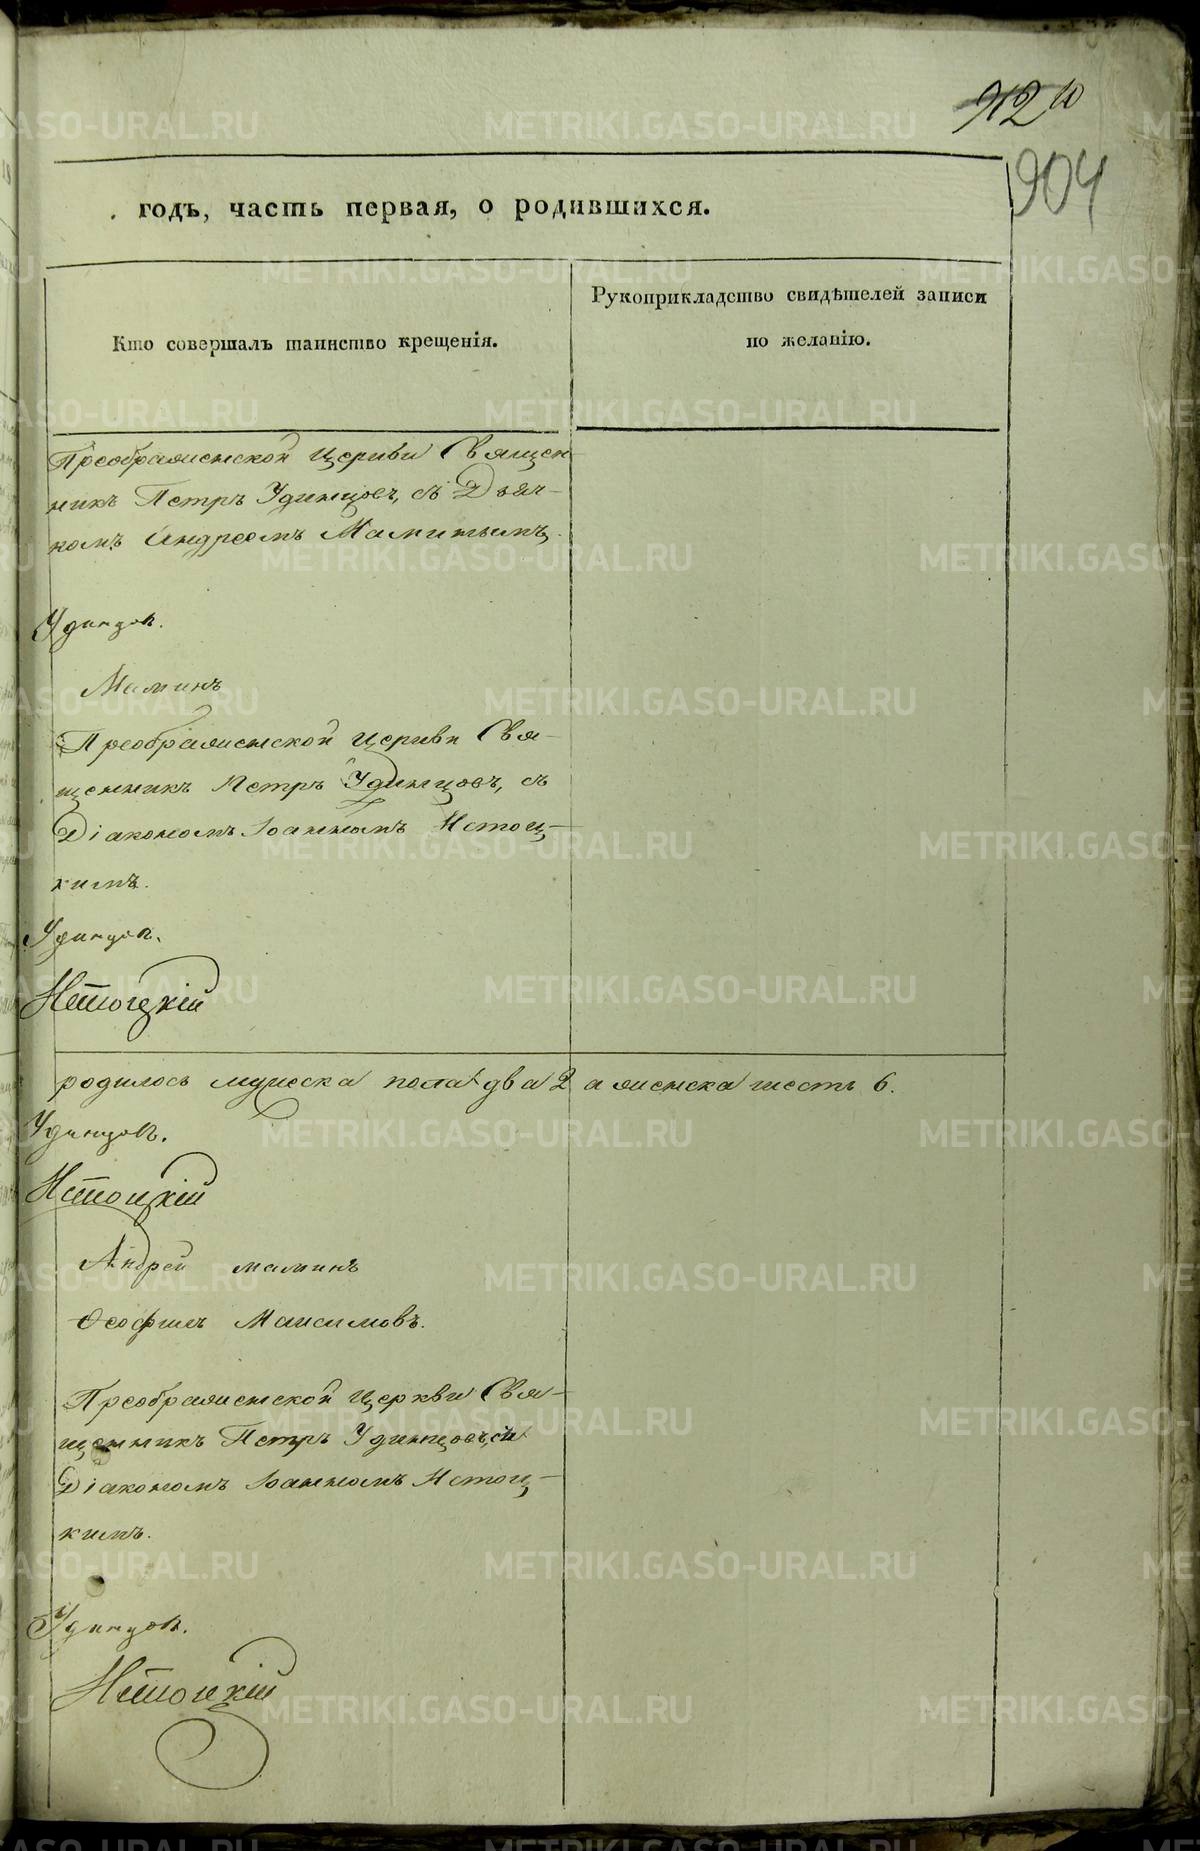 912
904
годъ, часть первая, о родившихся.
Кто совершалъ таинство крещенія.
Рукоприкладство свидѣтелей записи
по желанію.
Преображенской Церкви Священ-
никъ Петръ Удинцовъ, съ Дьяч-
комъ Андреемъ Маминымъ.
Удинцов.
Маминъ
Преображенской Церкви Свя-
щенникъ Петръ Удинцовъ, съ
Діакономъ Іоанномъ Истоц-
кимъ.
Удинцов.
Истоцкій
родилось мужеска пола два 2 а женска шесть 6.
Удинцов.
Истоцкій
Андрей маминъ
Ѳеофилъ Максимовъ.
Преображенской Церкви Свя-
щенникъ Петръ Удинцовъ, съ
Діакономъ Іоанномъ Истоц-
кимъ.
Удинцов.
Истоцкій
METRIKI.GASO-URAL.RU